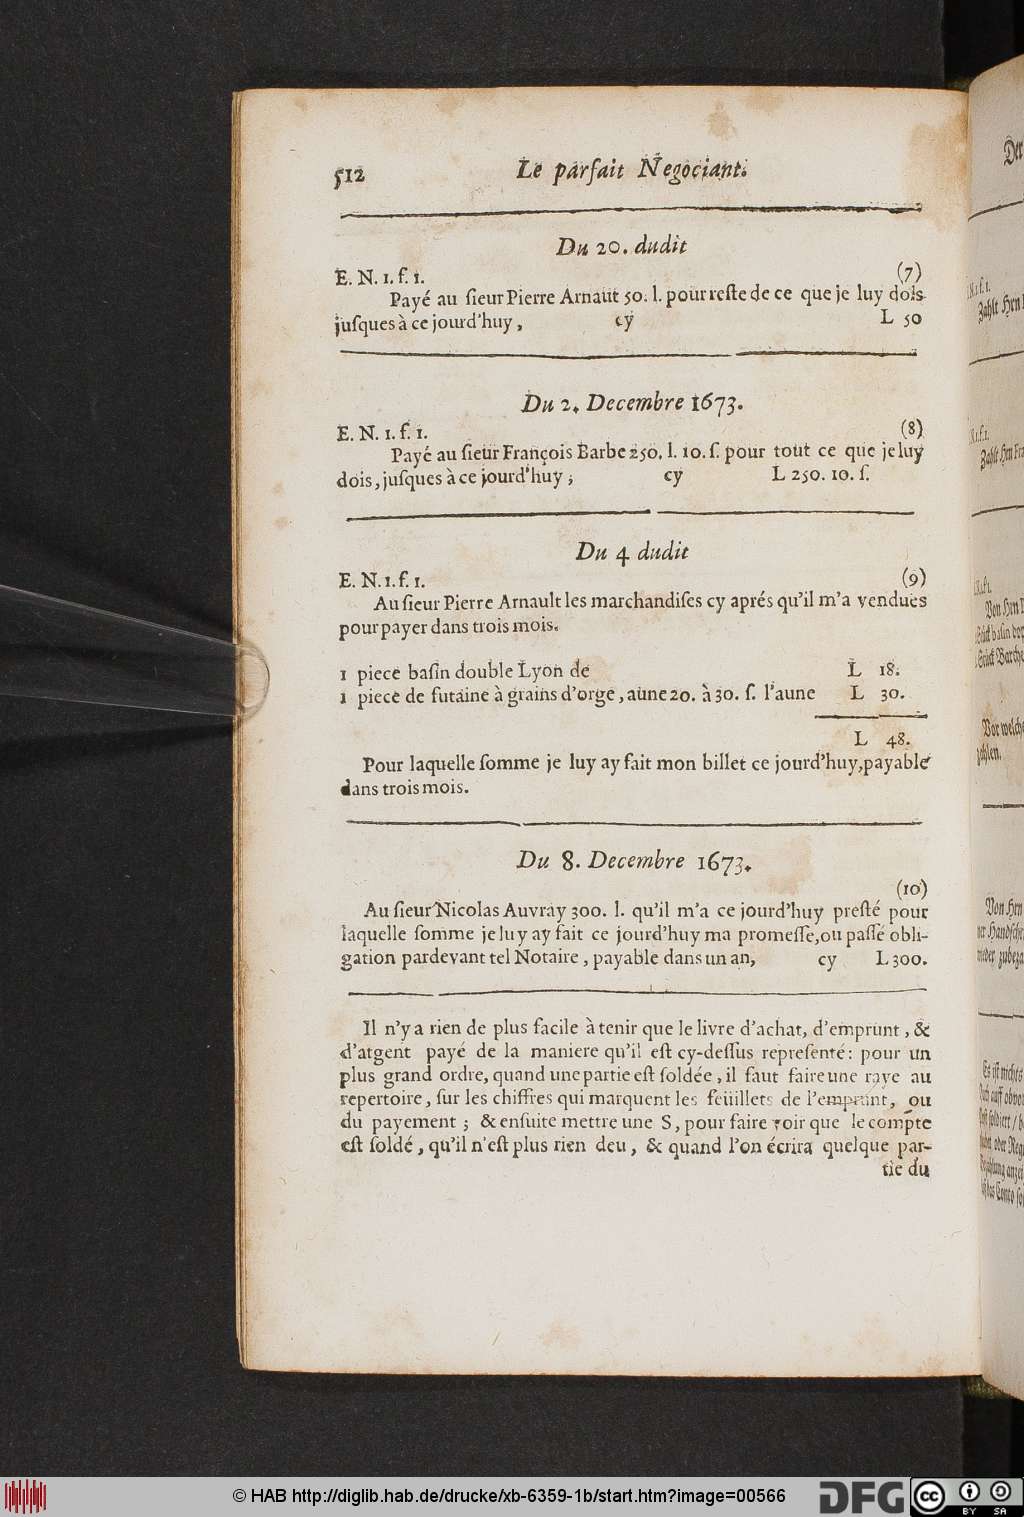 512 Le parfait Negociant.
Du 20. dudit
E. N. 1. f. 1. (7)
Payé au ſieur Pierre Arnaut 50. l. pour reſte de ce que je luy dois
juſques à ce jourd'huy, cy L 50
Du 2. Decembre 1673.
E. N. 1. f. 1. (8)
Payé au ſieur François Barbe 250. l. 10. ſ. pour tout ce que je luy
dois, juſques à ce jourd'huy; cy L 250. 10. ſ.
Du 4 dudit
E. N. 1. f. 1. (9)
Au ſieur Pierre Arnault les marchandiſes cy aprés qu'il m'a vendues
pour payer dans trois mois.
1 piece baſin double Lyon de L 18.
1 piece de futaine à grains d'orge, aune 20. à 30. ſ. l'aune L 30.
L 48.
Pour laquelle ſomme je luy ay fait mon billet ce jourd'huy, payable
dans trois mois.
Du 8. Decembre 1673.
(10)
Au ſieur Nicolas Auvray 300. l. qu'il m'a ce jourd'huy preſté pour
laquelle ſomme je luy ay fait ce jourd'huy ma promeſſe, ou paſſé obli-
gation pardevant tel Notaire, payable dans un an, cy L 300.
Il n'y a rien de plus facile à tenir que le livre d'achat, d'emprunt, &
d'atgent payé de la maniere qu'il eſt cy-deſſus repreſenté: pour un
plus grand ordre, quand une partie eſt ſoldée, il faut faire une raye au
repertoire, ſur les chiffres qui marquent les feüillets de l'emprunt, ou
du payement; & enſuite mettre une S, pour faire voir que le compte
eſt ſoldé, qu'il n'eſt plus rien deu, & quand l'on écrira quelque par-
tie du
© HAB http://diglib.hab.de/drucke/xb-6359-1b/start.htm?image=00566
DFG
cc
BY SA